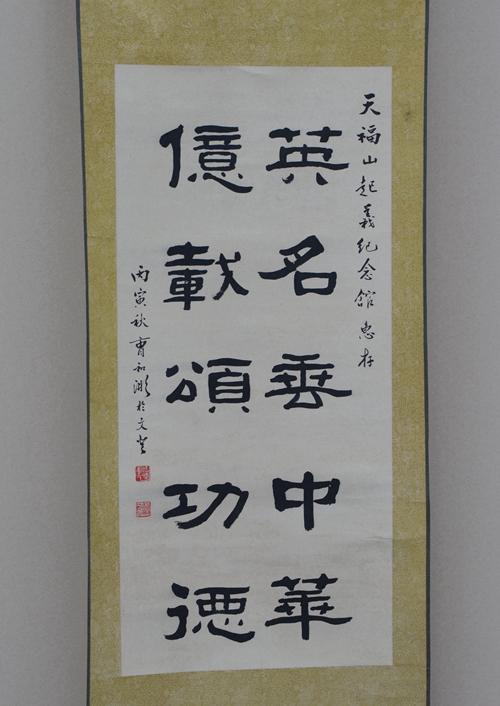 天福山起義紀念館惠存
英名垂中華
億載頌功德
丙寅秋曹和㴋於文登